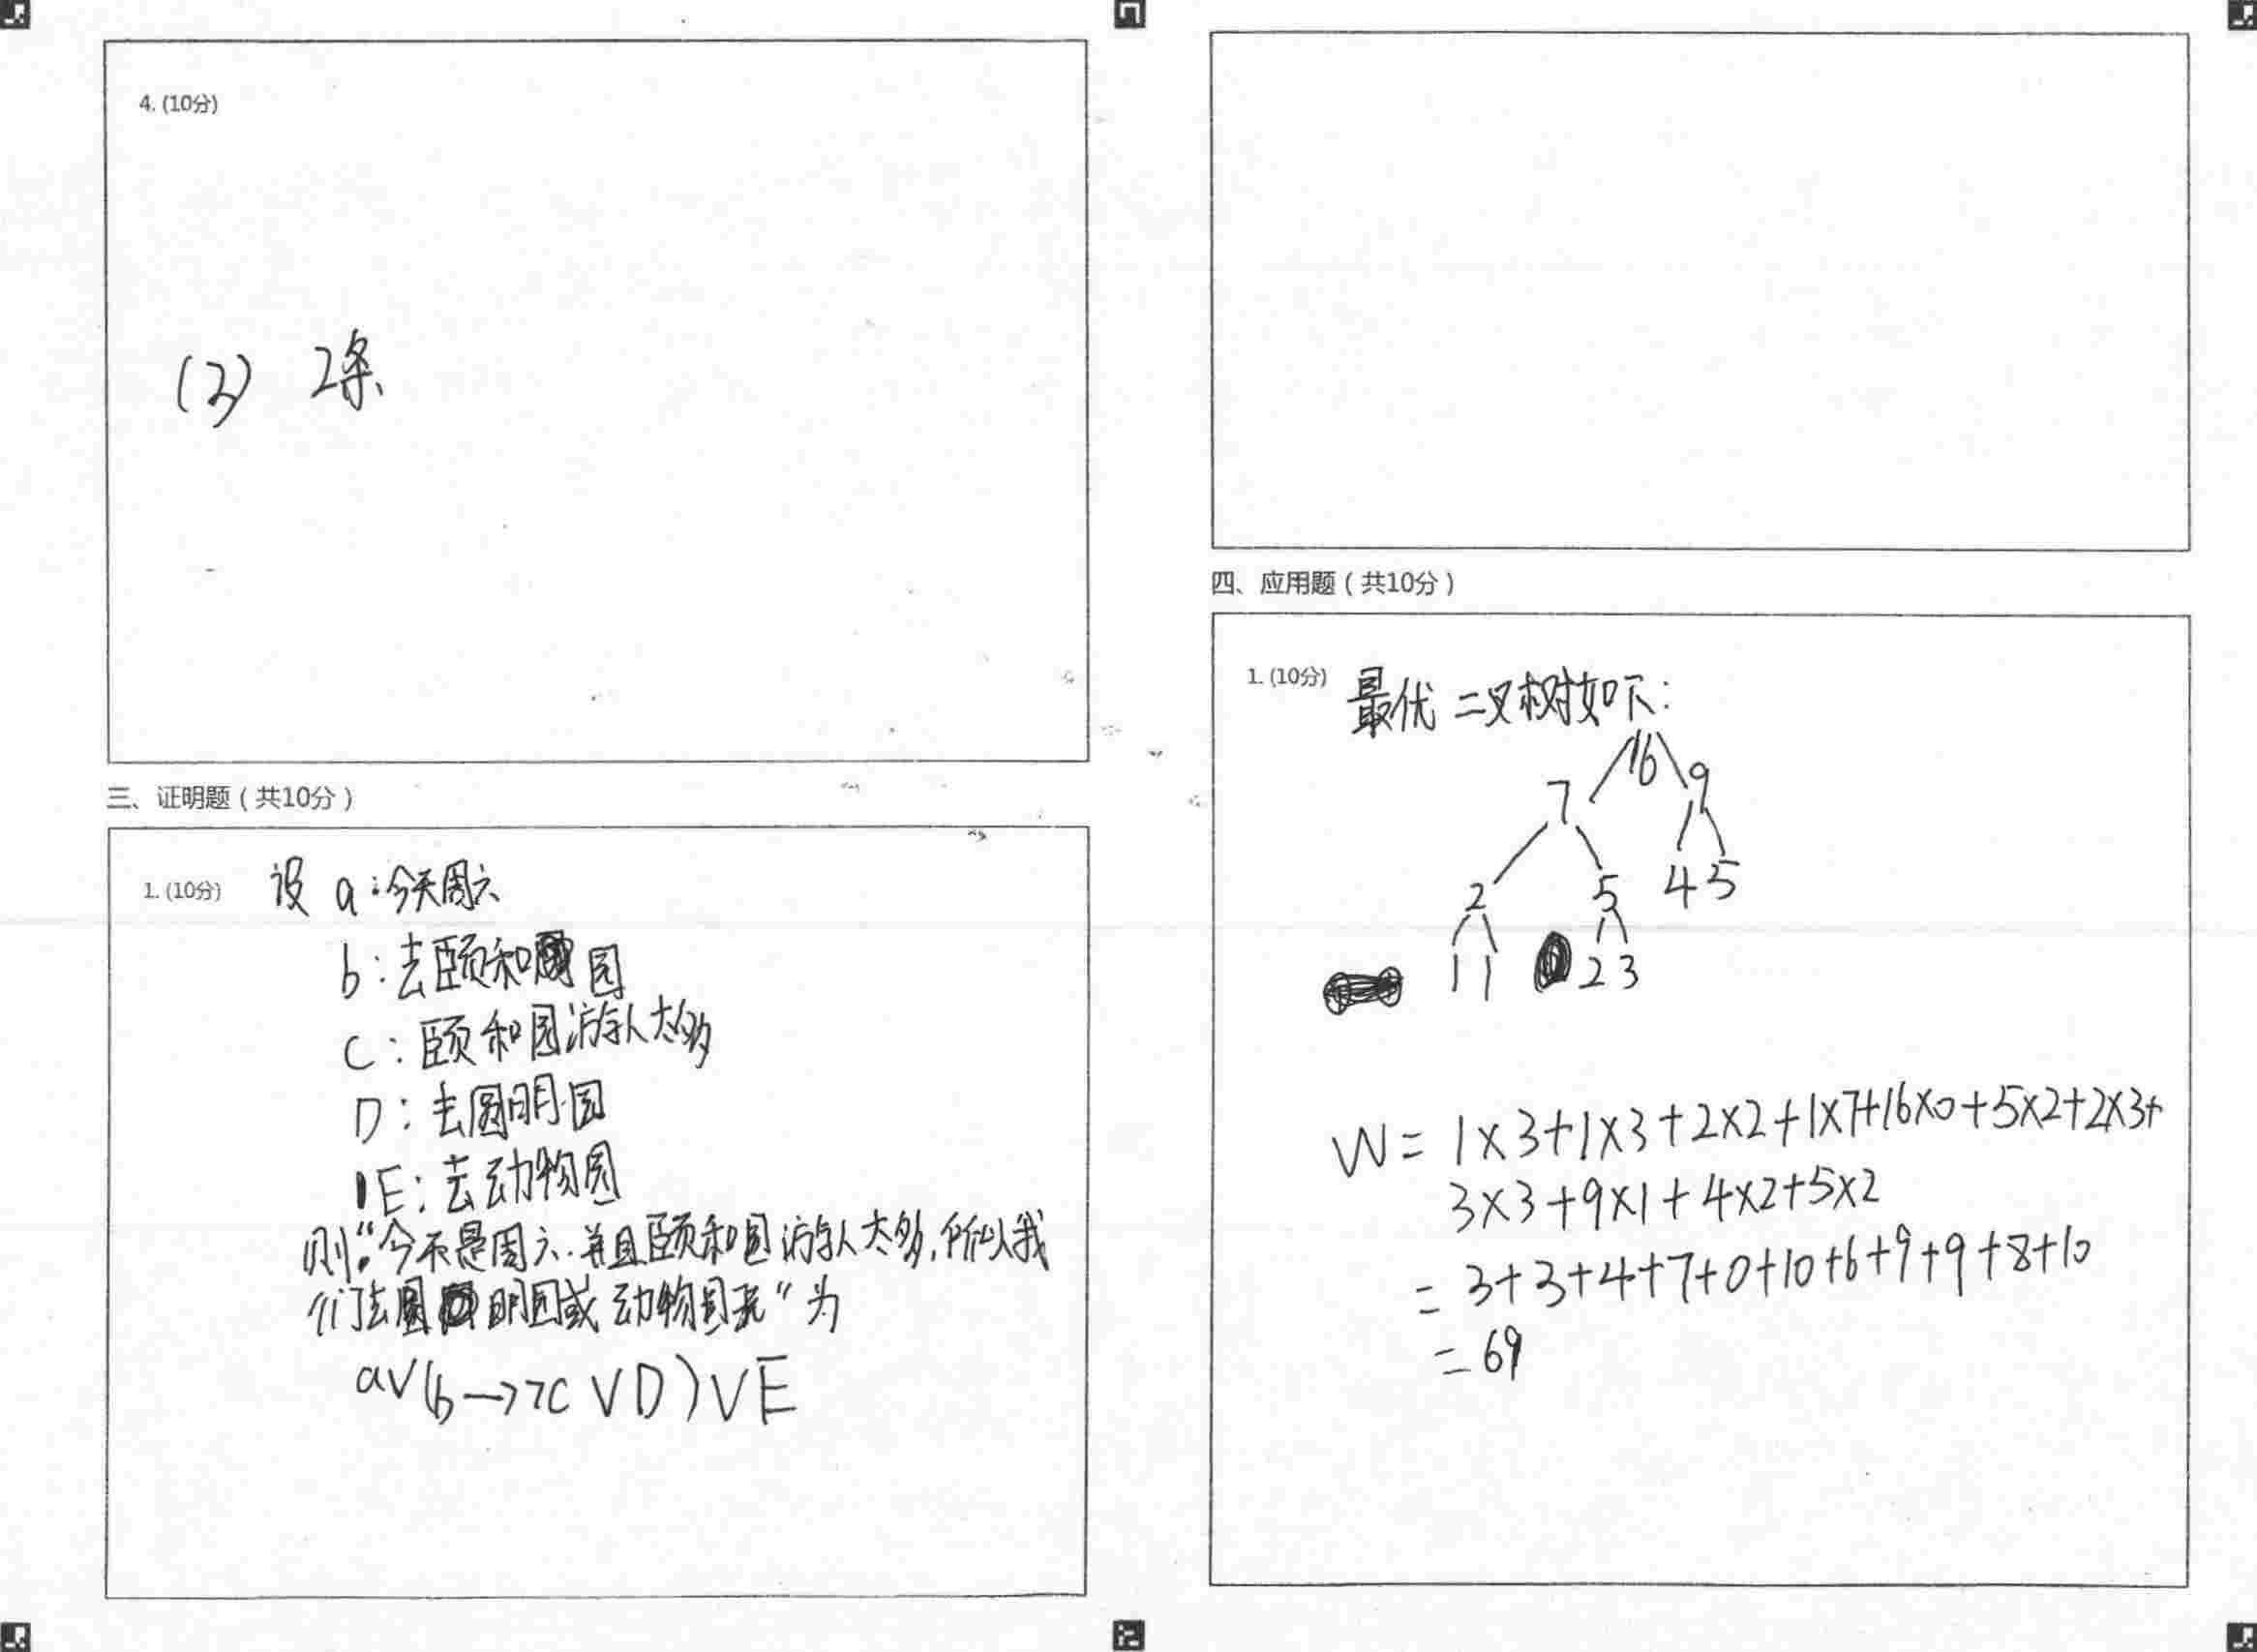 4. (10分)
(2) 2条
三、证明题（共10分）
1. (10分) 设 a：今天周六
b：去颐和园
C：颐和园游人太多
D：去圆明园
E：去动物园
则“今天是周六.并且颐和园游人太多,所以我
们去圆明园或动物园玩”为
a∨(b→¬C∨D)∨E
四、应用题（共10分）
1. (10分) 最优二叉树如下：
16
7 9
2 5 4 5
1 1 2 3
W = 1×3+1×3+2×2+1×7+16×0+5×2+2×3+
3×3+9×1+4×2+5×2
= 3+3+4+7+0+10+6+9+9+8+10
= 69